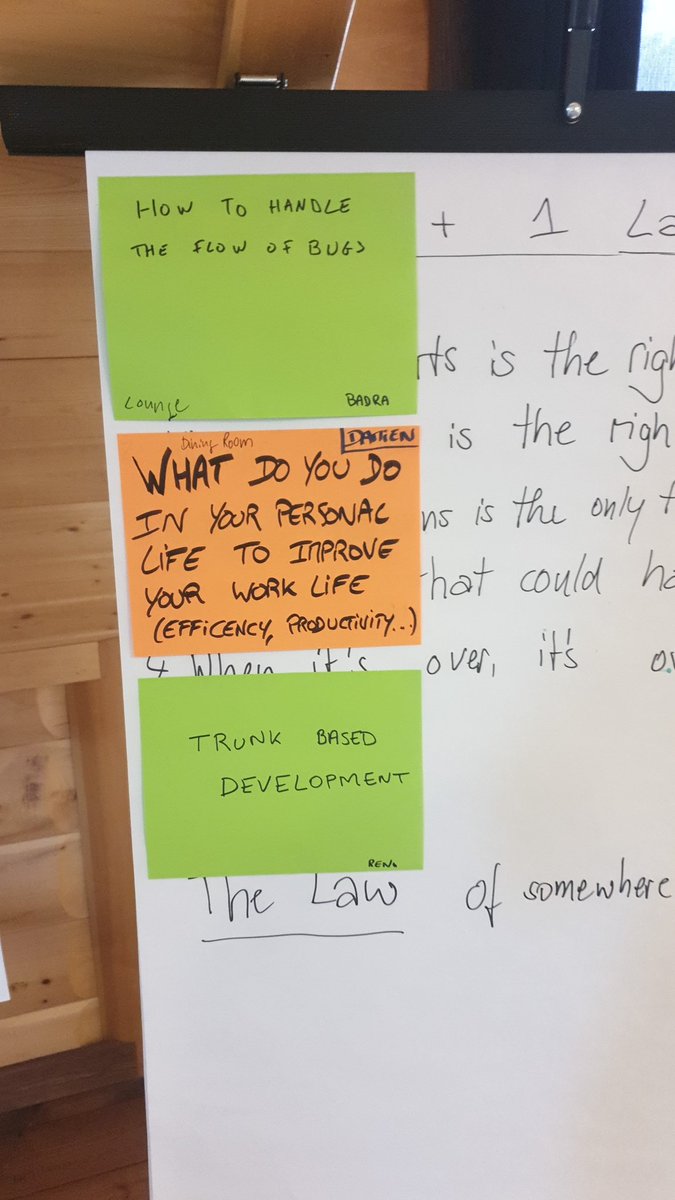 HOW TO HANDLE
THE FLOW OF BUGS
Lounge
BADRA
Dining Room
DAMIEN
WHAT DO YOU DO
IN YOUR PERSONAL
LIFE TO IMPROVE
YOUR WORK LIFE
(EFFICENCY, PRODUCTIVITY...)
TRUNK BASED
DEVELOPMENT
+ 1
is the
is the
is the only
could
4 When it's over, it's
The Law of somewhere